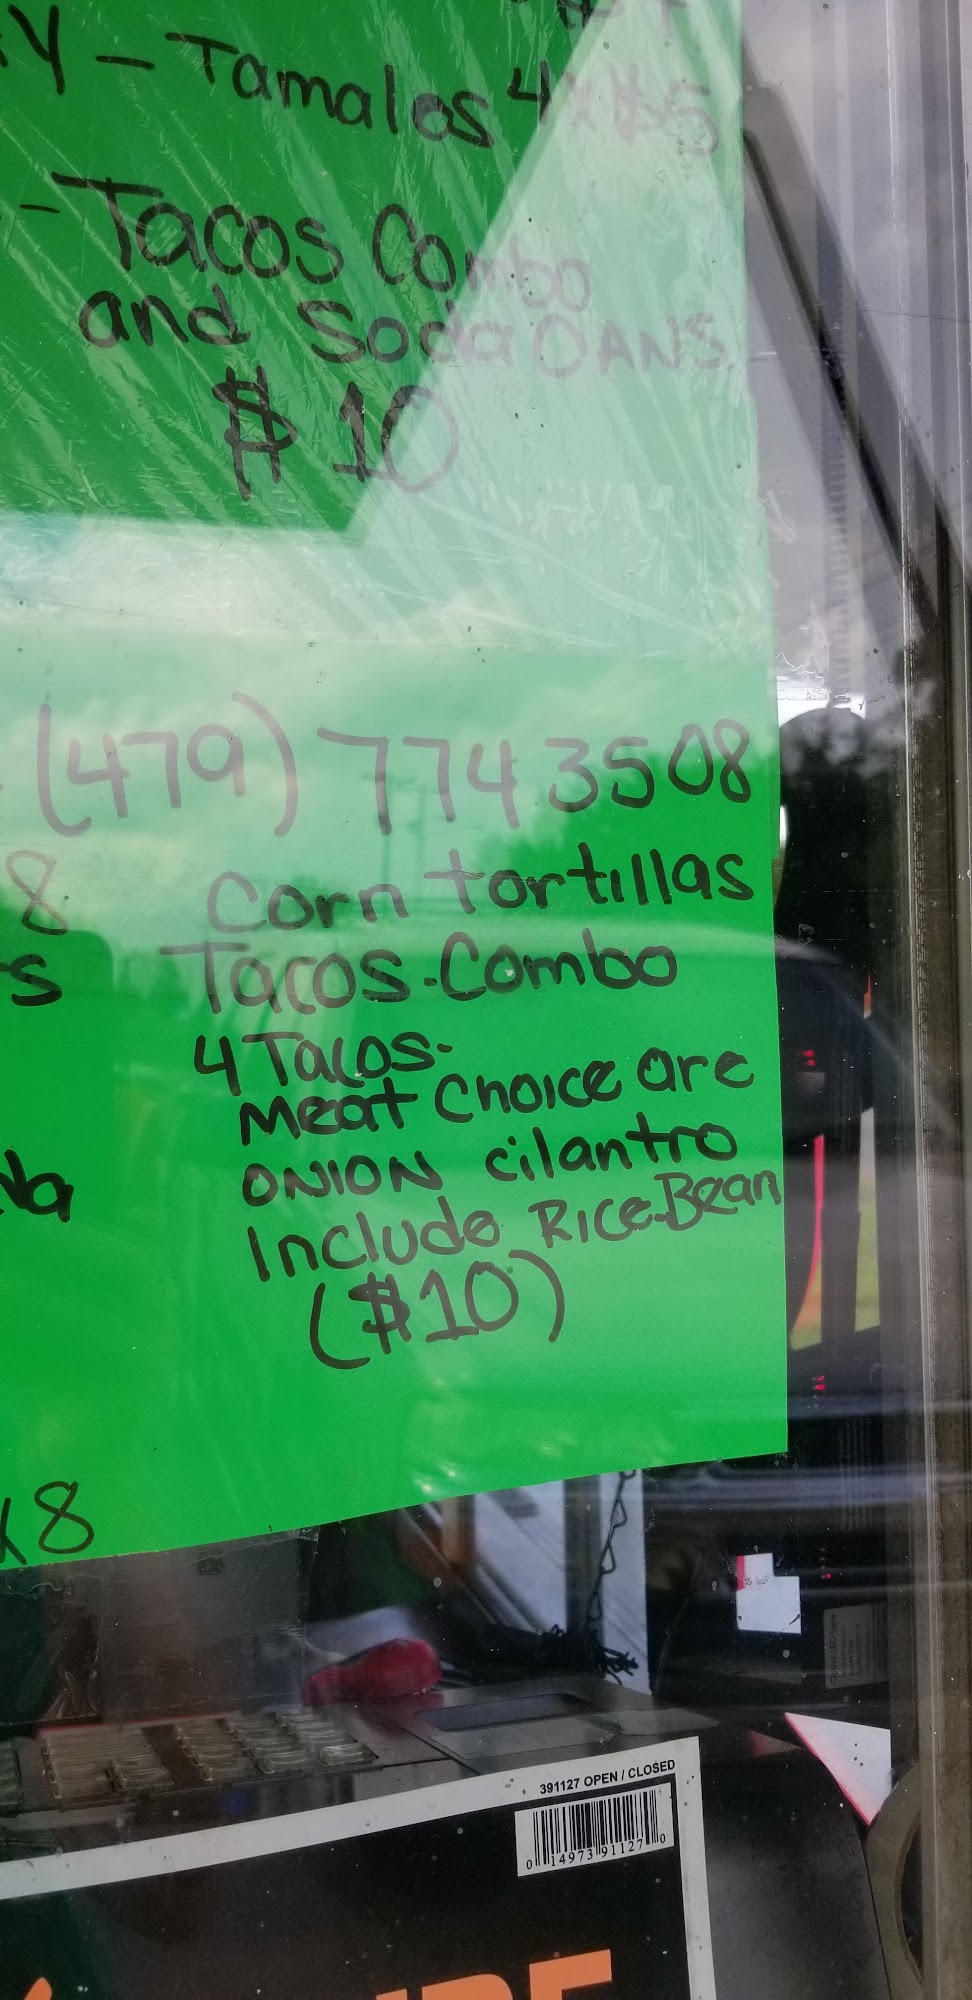 Y - Tamalos 4 x $5
- Tacos Combo
and soda CANS
$10
(479) 774 3508
8 Corn tortillas
s Tacos. Combo
4 Tacos.
Meat Choice are
ONION cilantro
Include Rice.Bean
($10)
x8
391127 OPEN / CLOSED
0 14973 91127 0